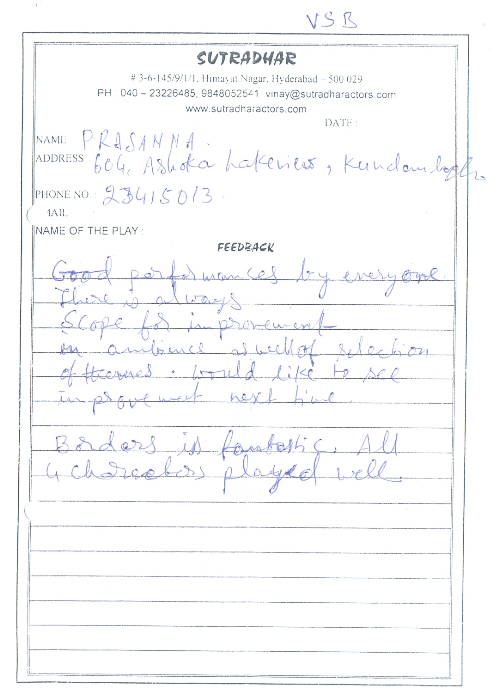 VSB
SUTRADHAR
# 3-6-145/9/1/1, Himayat Nagar, Hyderabad – 500 029
PH 040 – 23226485, 9848052541 vinay@sutradharactors.com
www.sutradharactors.com
DATE :
NAME PRASANNA.
ADDRESS 604, Ashoka Lakeview,
PHONE NO : 23415013
MAIL
NAME OF THE PLAY :
FEEDBACK
Good performances by everyone
There is always
Scope for improvement
in ambience as well of selection
of themes. Would like to see
improvement next time.
Borders is fantastic. All
4 charecters played well